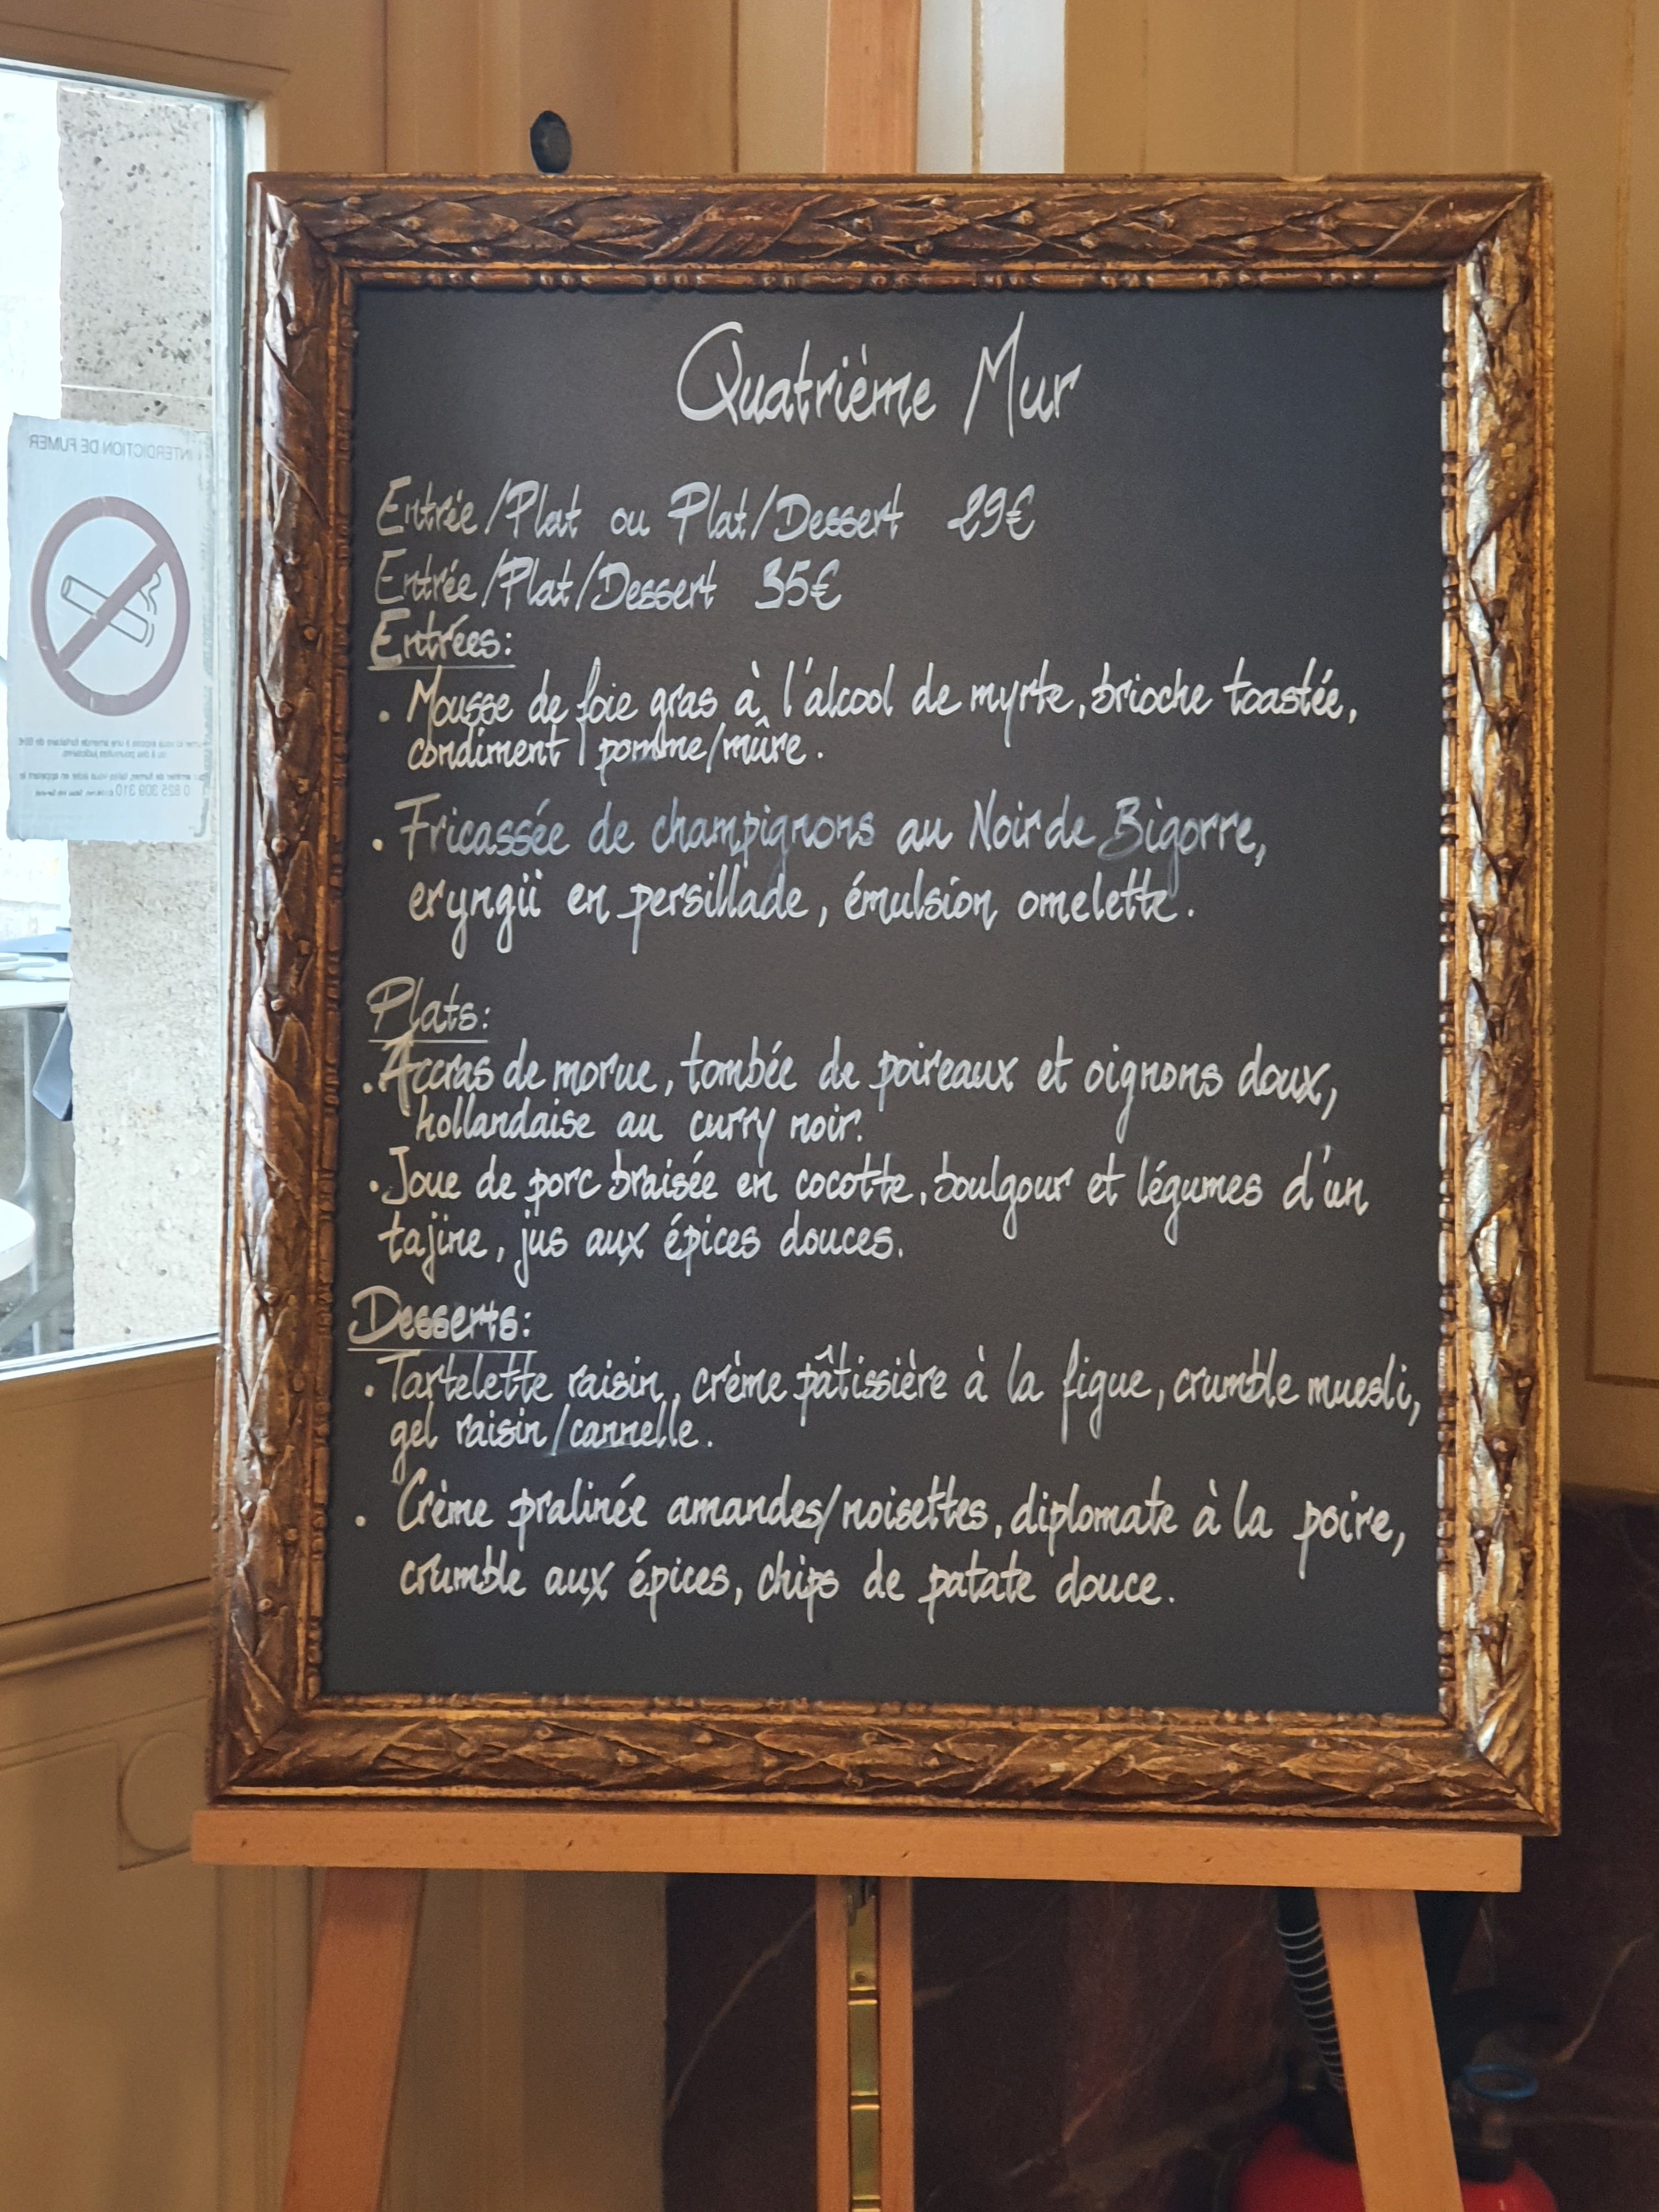 Quatrième Mur
Entrée/Plat ou Plat/Dessert 29€
Entrée/Plat/Dessert 35€
Entrées:
. Mousse de foie gras à l'alcool de myrte, brioche toastée,
condiment pomme/mûre.
. Fricassée de champignons au Noir de Bigorre,
eryngii en persillade, émulsion omelette.
Plats:
. Accras de morue, tombée de poireaux et oignons doux,
hollandaise au curry noir.
. Joue de porc braisée en cocotte, boulgour et légumes d'un
tajine, jus aux épices douces.
Desserts:
. Tartelette raisin, crème pâtissière à la figue, crumble muesli,
gel raisin/cannelle.
. Crème pralinée amandes/noisettes, diplomate à la poire,
crumble aux épices, chips de patate douce.
INTERDICTION DE FUMER
0 825 309 310